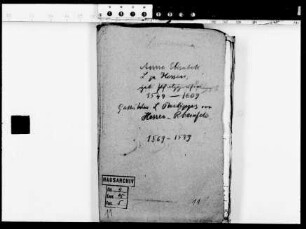 Anna Elisabeth
L. zu Hessen,
geb. Pfalzgräfin
1549 — 1609
Gemahlin L. Philipps von
Hessen-Rheinfels
1569–1579
HAUSARCHIV
11
11